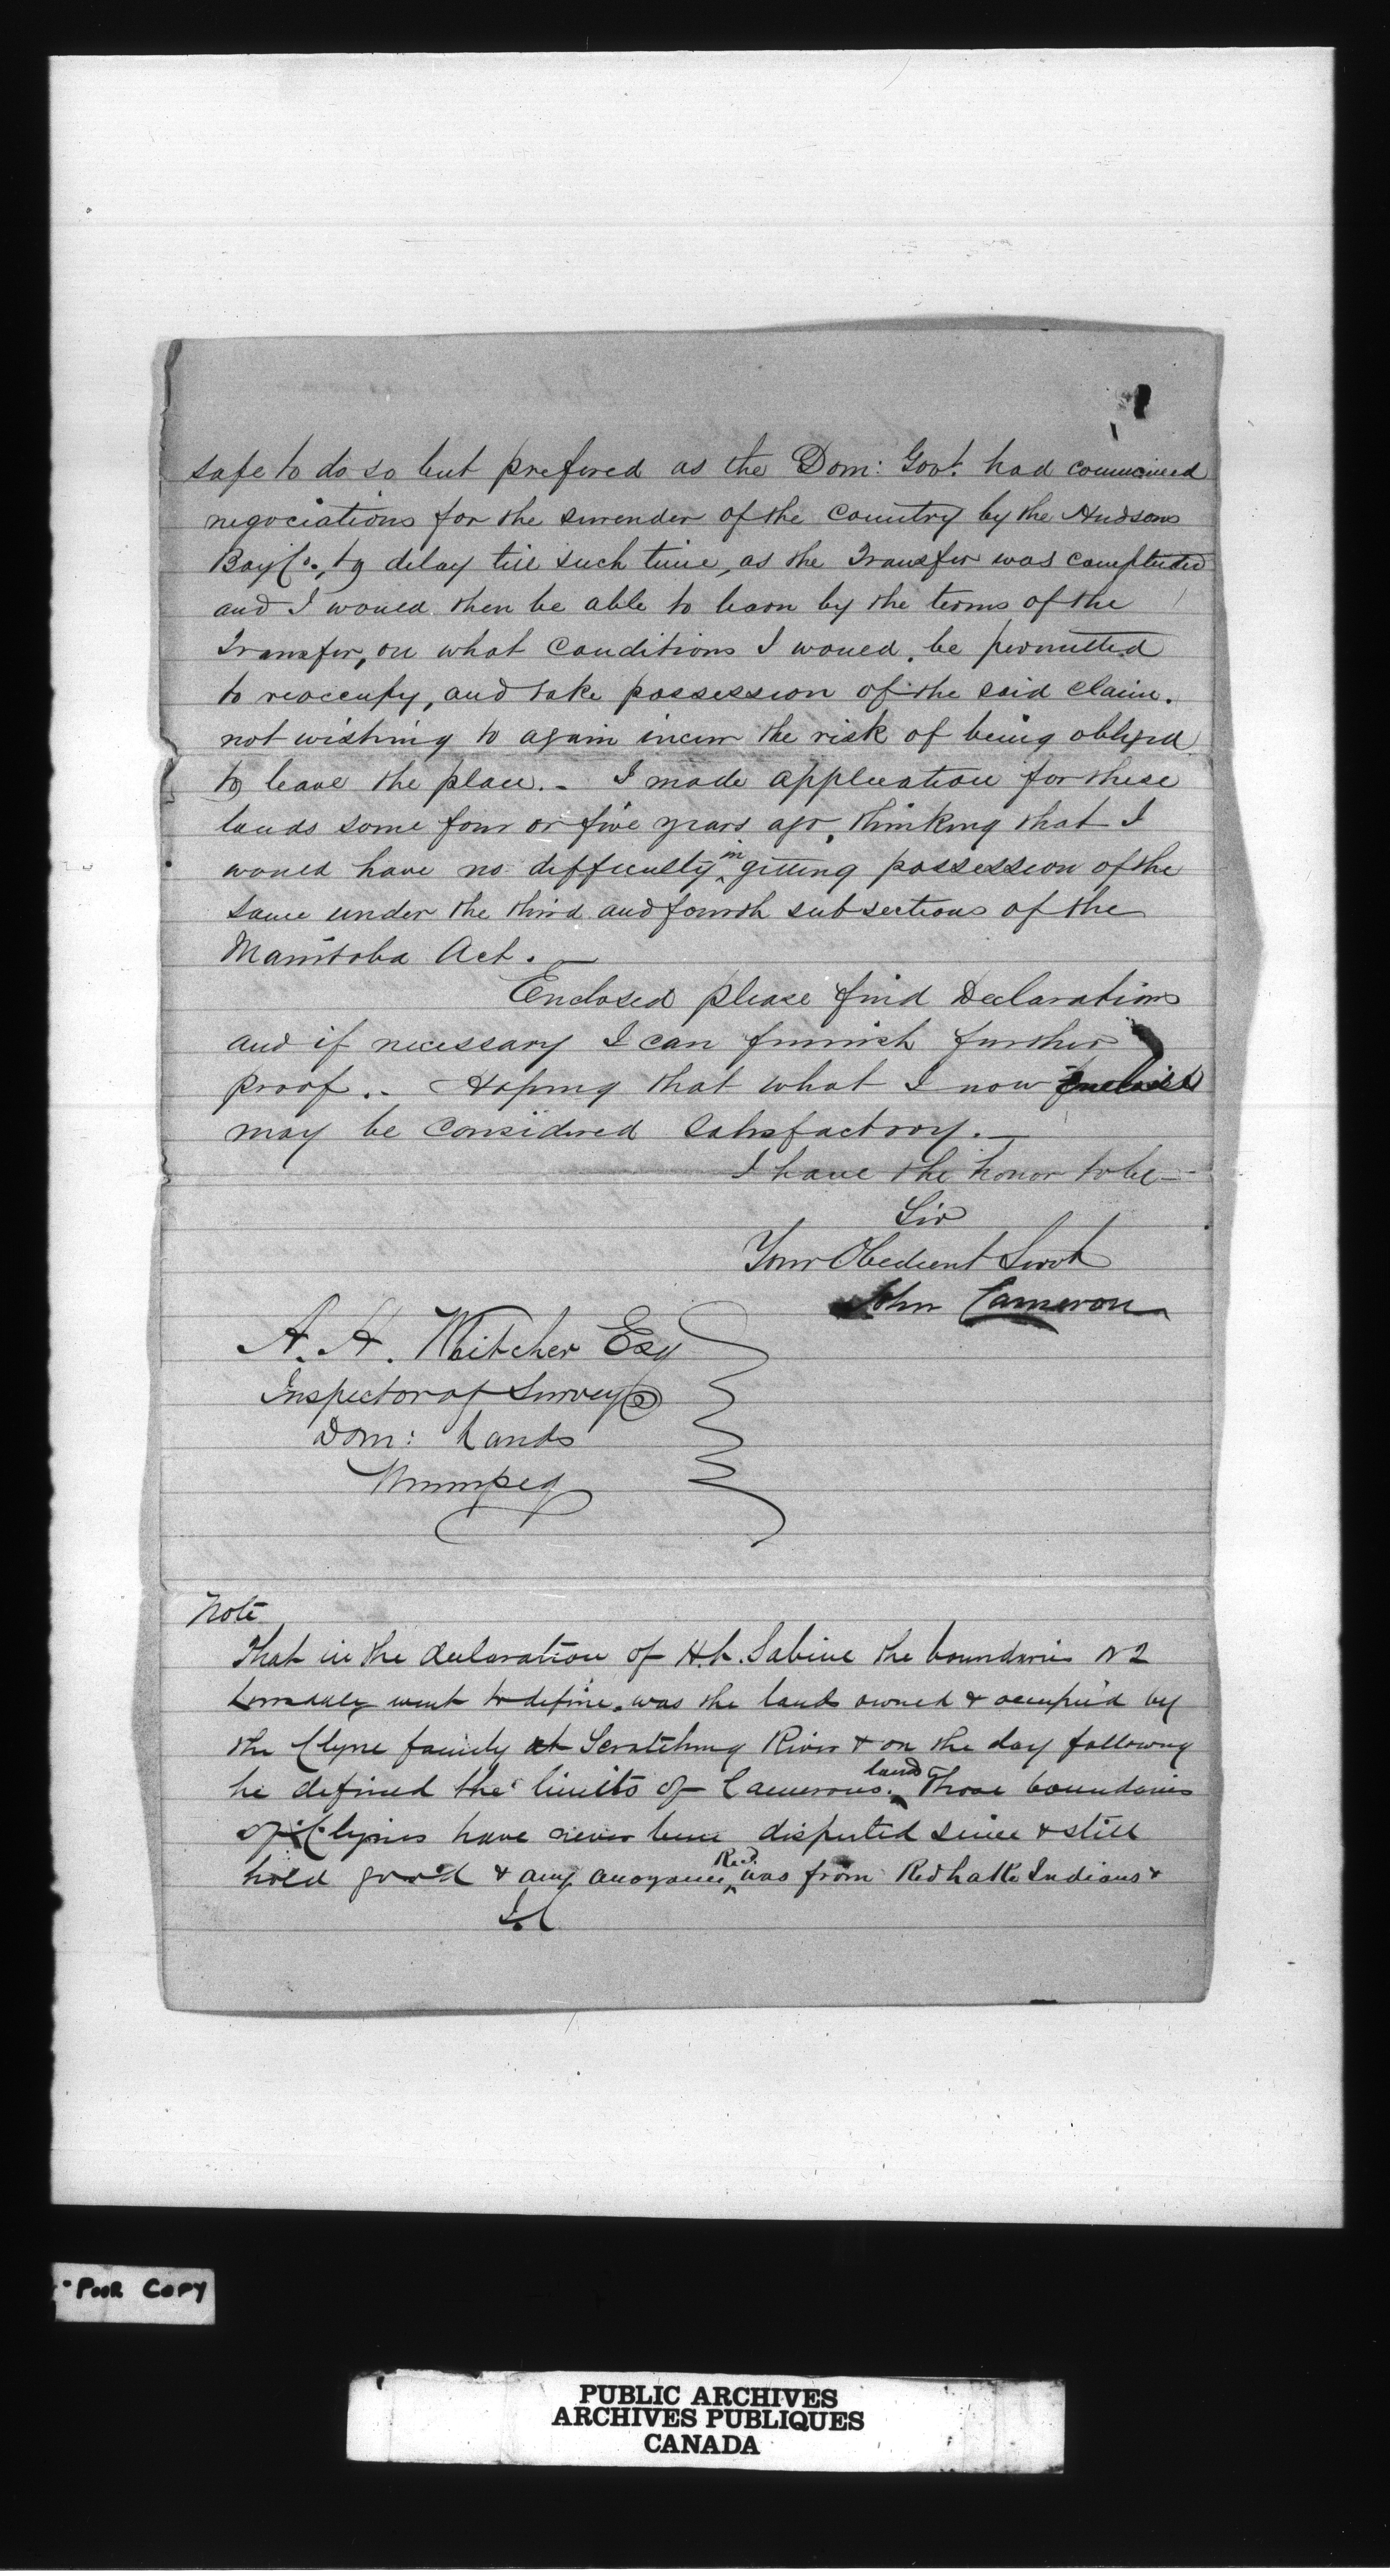 safe to do so but prefered as the Dom: Govt. had commenced
negociations for the surrender of the Country by the Hudsons
Bay Co., to delay till such time, as the Transfer was completed
and I would then be able to learn by the terms of the
Transfer, on what Conditions I would, be permitted
to reoccupy, and take possession of the said claim.
not wishing to again incur the risk of being obliged
to leave the place. - I made application for these
lands some four or five years ago, thinking that I
would have no difficulty in getting possession of the
same under the third and fourth subsections of the
Manitoba Act. -
Enclosed please find Declarations
and if necessary I can furnish further
proof. - Hoping that what I now Enclose
may be considered satisfactory. -
I have the honor to be -
Sir
Your Obedient Servt
John Cameron
A. H. Whitcher Esq
Inspector of Surveys
Dom: Lands
Winnipeg
Note
That in the declaration of H. L. Sabine the boundaries
went to define, was the lands owned & occupied by
the Clyne family at Scratching River & on the day following
he defined the limits of Camerons land. Those boundaries
of Clynes have never been disputed since & still
hold good & any anoyance Red. was from Red Lake Indians &
J.C
Poor Copy
PUBLIC ARCHIVES
ARCHIVES PUBLIQUES
CANADA